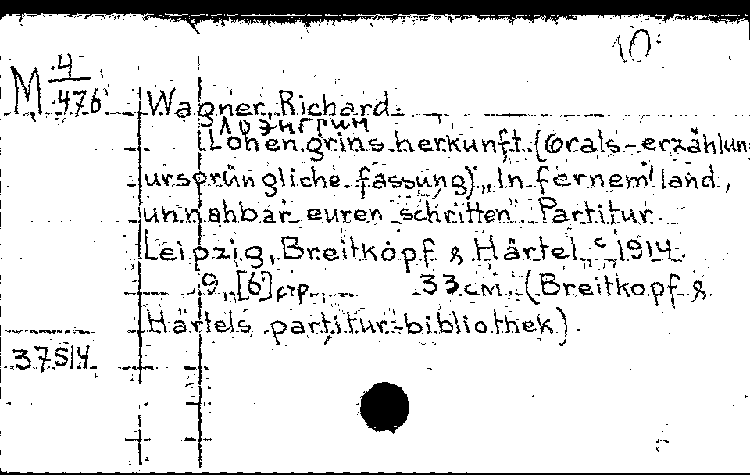 10
M 4/476
Wagner, Richard.
Лоэнгрин
Lohengrins herkunft. (Grals-erzählung
ursprüngliche fassung) „In fernem land,
unnahbar euren schritten". Partitur.
Leipzig, Breitkopf & Härtel c 1914.
9, [6] стр. 33 см. (Breitkopf &
Härtels partitur-bibliothek).
375 14